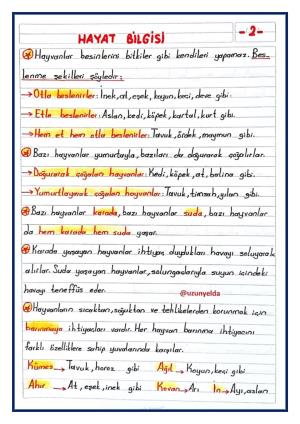 HAYAT BİLGİSİ
- 2 -
Hayvanlar besinlerini bitkiler gibi kendileri yapamaz. Bes-
lenme şekilleri şöyledir:
→ Otla beslenirler: İnek, at, eşek, koyun, keçi, deve gibi.
→ Etle beslenirler: Aslan, kedi, köpek, kartal, kurt gibi.
→ Hem et hem otla beslenirler: Tavuk, ördek, maymun gibi.
Bazı hayvanlar yumurtayla, bazıları da doğurarak çoğalırlar.
→ Doğurarak çoğalan hayvanlar: Kedi, köpek, at, balina gibi.
→ Yumurtlayarak çoğalan hayvanlar: Tavuk, timsah, yılan gibi.
Bazı hayvanlar karada, bazı hayvanlar suda, bazı hayvanlar
da hem karada hem suda yaşar.
Karada yaşayan hayvanlar ihtiyaç duydukları havayı soluyarak
alırlar. Suda yaşayan hayvanlar, solungaçlarıyla suyun içindeki
havayı teneffüs eder.
@uzunyelda
Hayvanların sıcaktan, soğuktan ve tehlikelerden korunmak için
barınmaya ihtiyaçları vardır. Her hayvan barınma ihtiyacını
farklı özelliklere sahip yuvalarında karşılar.
Kümes → Tavuk, horoz gibi Ağıl → Koyun, keçi gibi
Ahır → At, eşek, inek gibi Kovan → Arı İn → Ayı, aslan